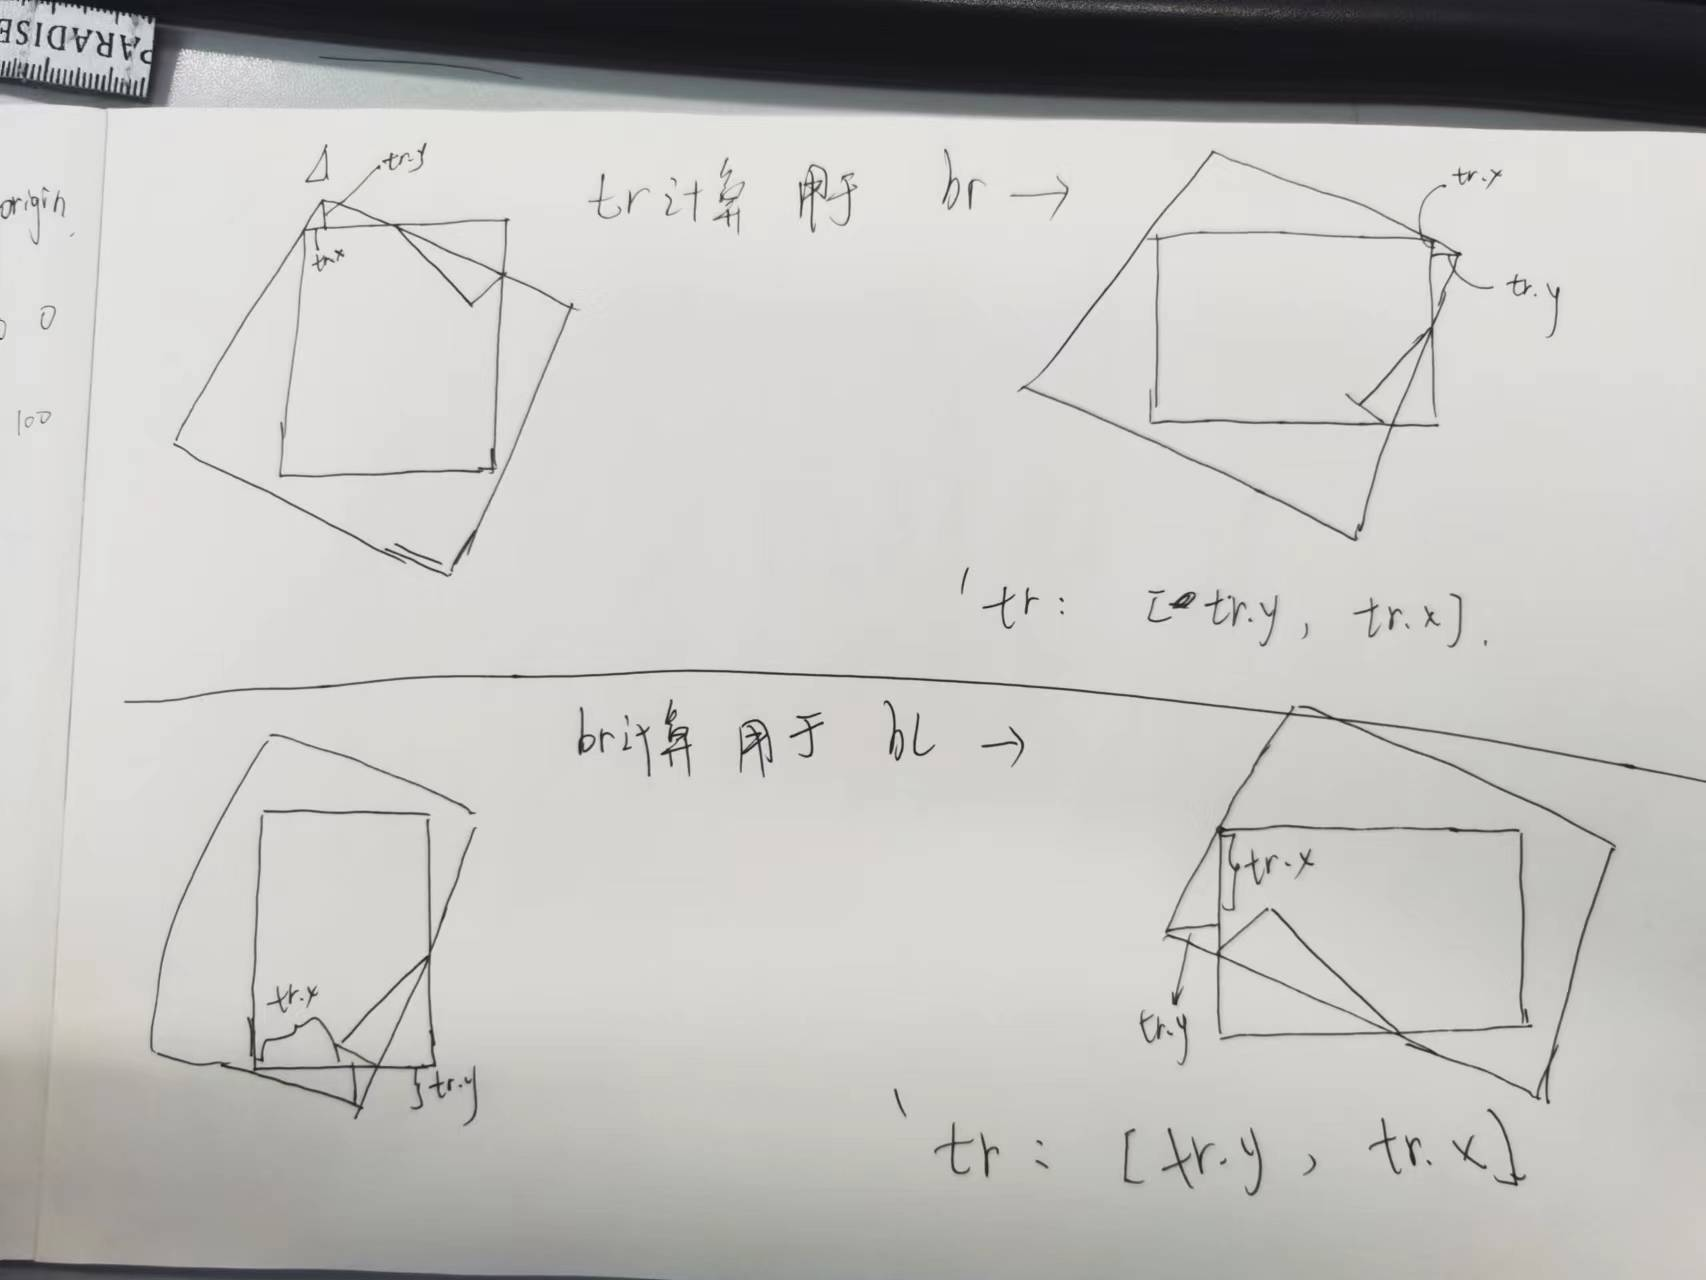 PARADISE
origin.
0
100
Δ
tr.y
tr.x
tr计算 用于 br →
tr.x
tr.y
'tr: [ tr.y, tr.x].
br计算 用于 bL →
tr.x
tr.y
tr.x
tr.y
'tr: [tr.y, tr.x]